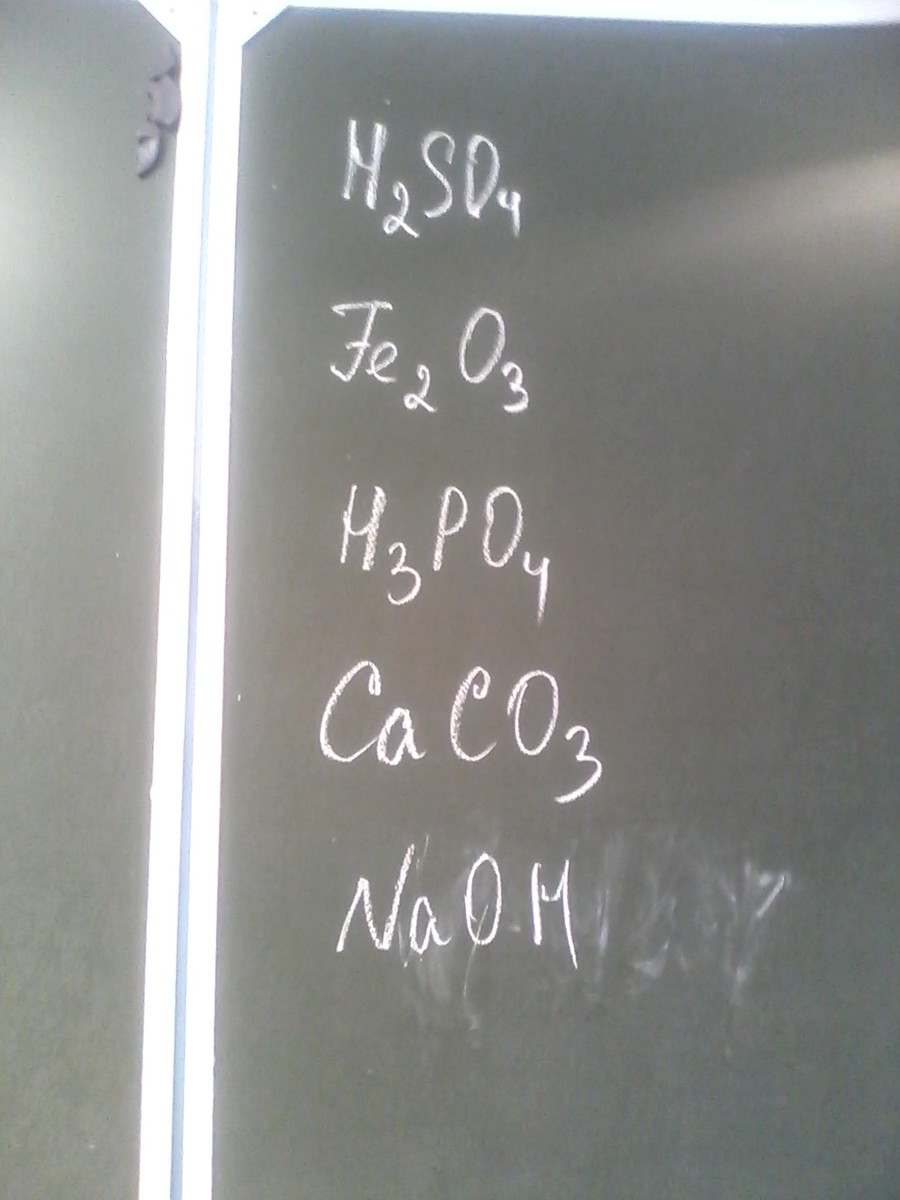 H₂SO₄
Fe₂O₃
H₃PO₄
CaCO₃
NaOH